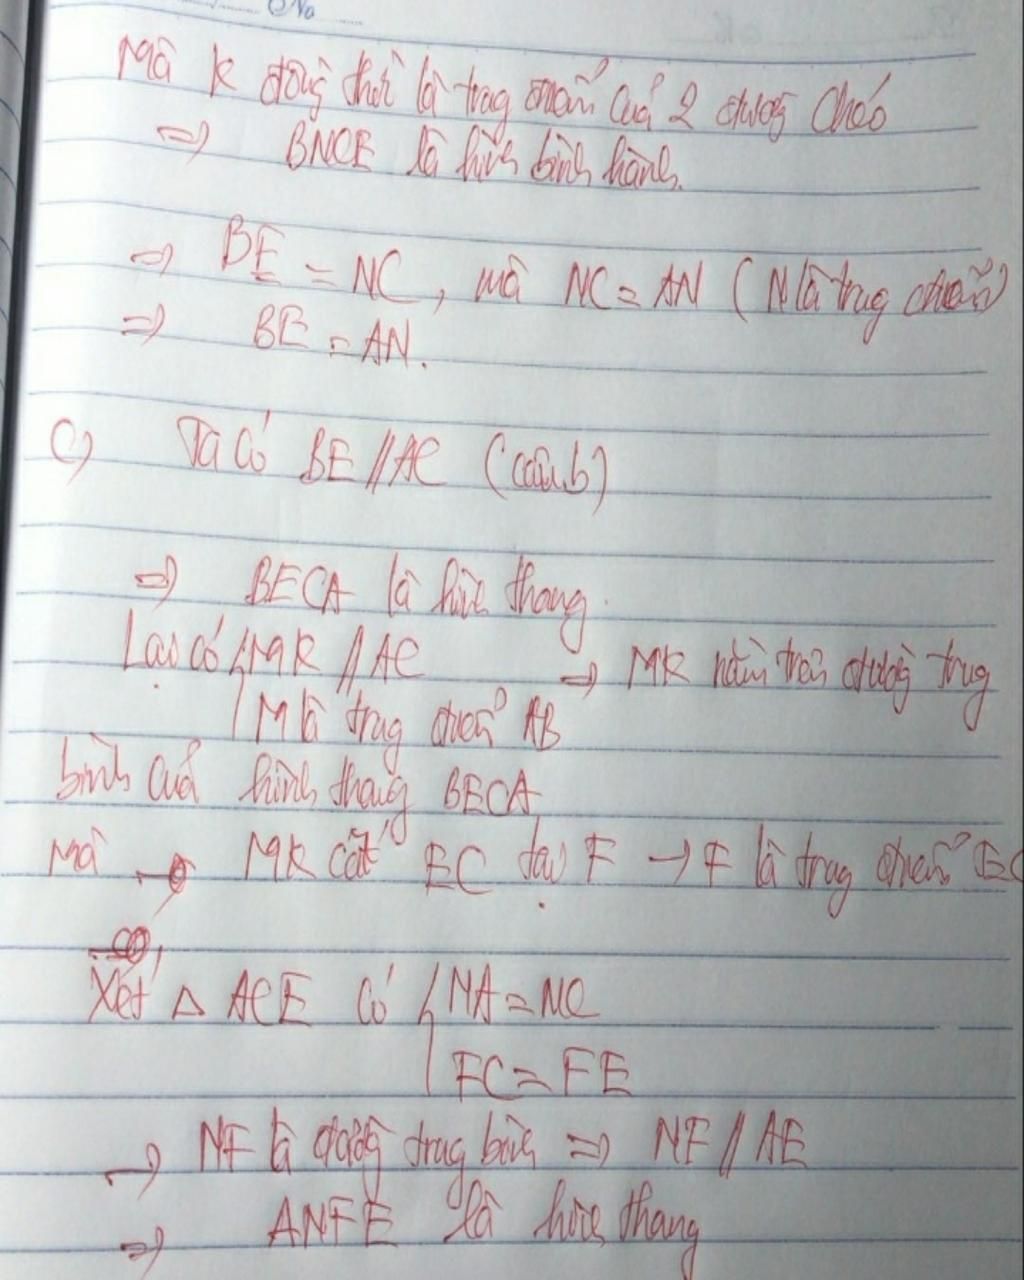 No
Mà K đồng thời là trung điểm của 2 đường chéo
=> BNCE là hình bình hành.
=> BE = NC, mà NC = AN (N là trung điểm)
=> BE = AN.
c) Ta có BE // AC (câu b)
=> BECA là hình thang.
Lại có { MK // AC => MK nằm trên đường trung
M là trung điểm AB
bình của hình thang BECA
Mà MK cắt EC tại F → F là trung điểm EC
Xét Δ ACE có { NA = NC
FC = FE
→ NF là đường trung bình => NF // AE
=> ANFE là hình thang